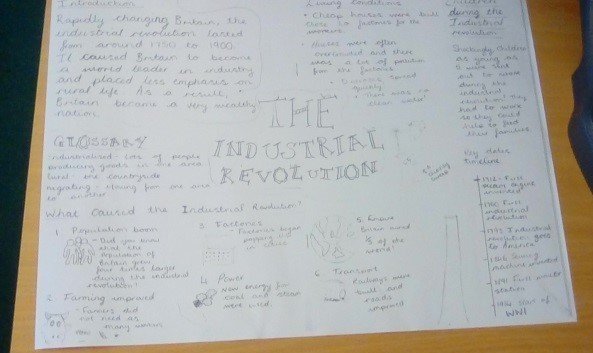 Introduction
Rapidly changing Britain, the
industrial revolution lasted
from around 1750 to 1900.
It caused Britain to become
a world leader in industry
and placed less emphasis on
rural life. As a result,
Britain became a very wealthy
nation.
Living conditions
• Cheap houses were built
close to factories for the
workers.
• Houses were often
overcrowded and there
was a lot of pollution
from the factories.
• Diseases spread
quickly
• There was no
clean water
Children
during the
Industrial
revolution.
Shockingly children
as young as
were sent
out to work
during the
industrial
revolution they
had to work
so they could
help to feed
their families.
THE
INDUSTRIAL
REVOLUTION
GLOSSARY
industrialised - lots of people
producing goods in the area
rural - the countryside
migrating - moving from one area
to another
What Caused the Industrial Revolution?
1. Population boom
- Did you know
that the
Population of
Britain grew
four times larger
during the industrial
revolution?
2. Farming improved
- Farmers did
not need as
many workers
3. Factories
Factories began
popping up
4. Power
New energy for
coal and steam
were used.
5. Empire
Britain owned
1/5 of the
world!
6. Transport
Railways were
built and
roads
improved
Key dates
timeline
1712 - First
steam engine
invented
1760 First
industrial
revolution
1793 Industrial
revolution goes
to America
1846 Sewing
machine invented
1891 First
station
1914 Start of
WW1